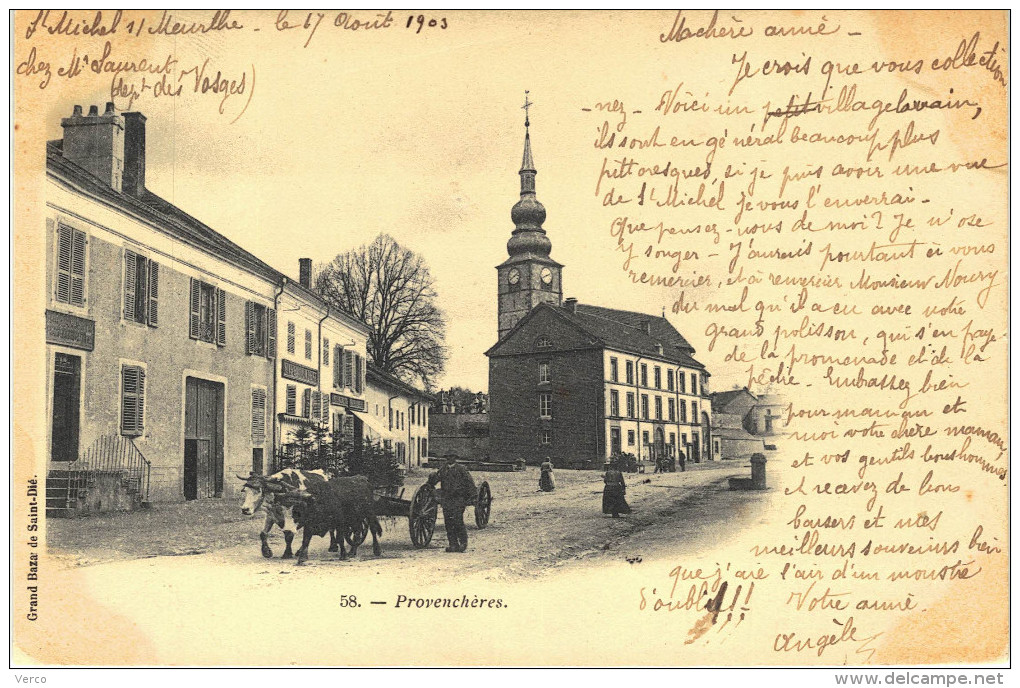 St Michel s/ Meurthe - le 17 Août 1903
chez Me Laurent
(dept des Vosges)
Ma chère amie -
Je crois que vous collection
-nez - Voici un petit village lorrain,
ils sont en général beaucoup plus
pittoresques, si je puis avoir une vue
de St Michel, je vous l'enverrai -
Que pensez-vous de moi? Je n'ose
y songer - J'aurais pourtant à vous
remercier, et à remercier Monsieur Noury
du mal qu'il a eu avec votre
grand polisson, qui s'en paye
de la promenade et de la
pêche - Embrassez bien
pour maman et
moi votre chère maman,
et vos gentils bonshommes
et recevez de bons
baisers et mes
meilleurs souvenirs bien
que j'aie l'air d'un monstre
d'oubli!!!
Votre amie
Angèle
58. — Provenchères.
Grand Bazar de Saint-Dié.
Verco
www.delcampe.net